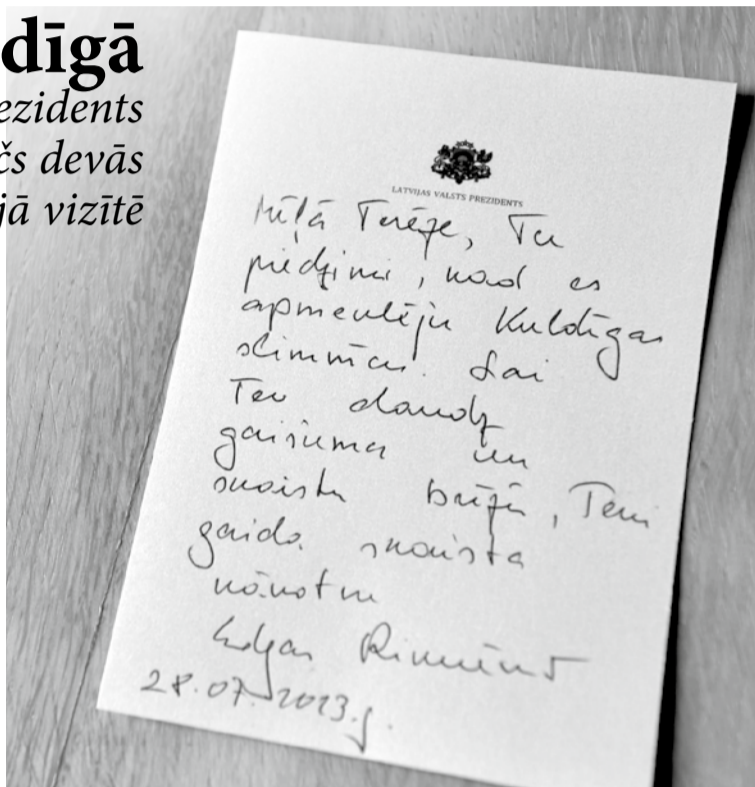 dīgā
ezidents
čs devās
jā vizītē
LATVIJAS VALSTS PREZIDENTS
Mīļā Terēze, Tu
piedzimi, kad es
apmeklēju Kuldīgas
slimnīcu. Lai
Tev daudz
gaišuma un
skaistu brīžu, Tevi
gaida skaista
nākotne
Edgars Rinkēvičs
28.07.2023.g.